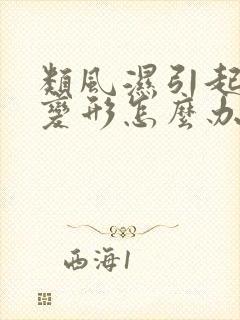 類風濕引起
變形怎麼办
西海1